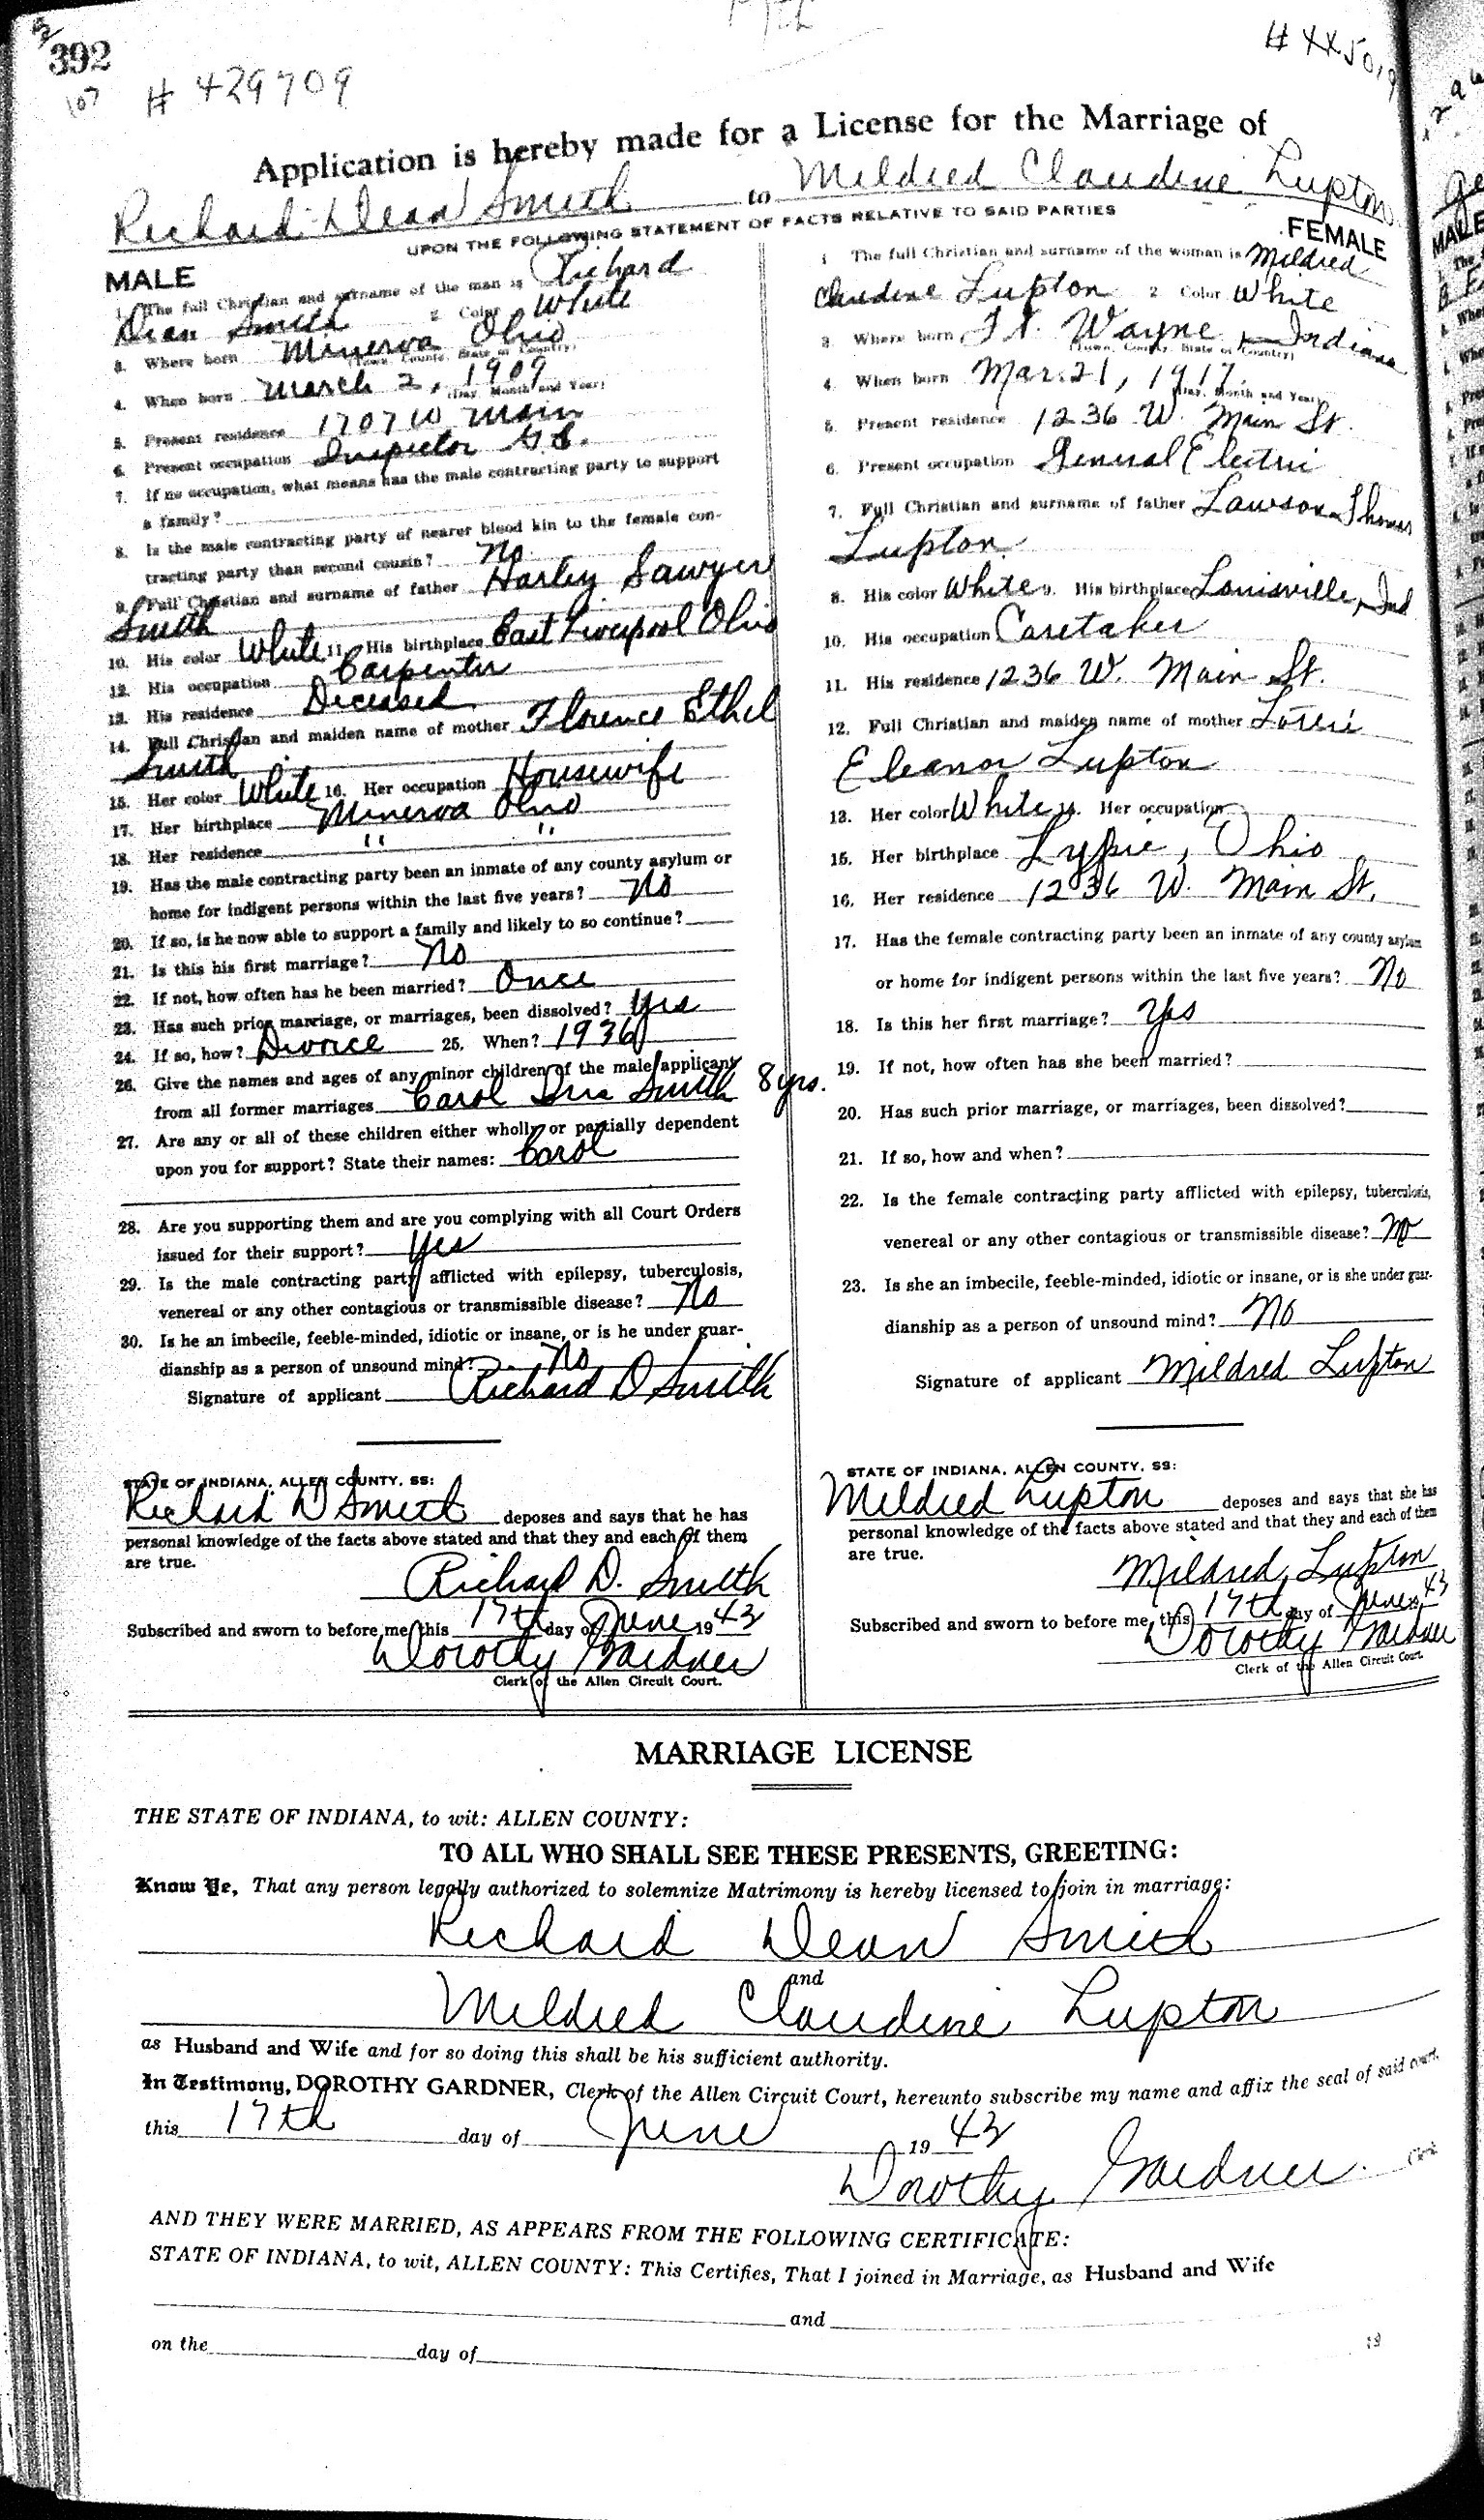 392
107
# 429709
Application is hereby made for a License for the Marriage of
Richard Dean Smith to Mildred Claudine Lupton
UPON THE FOLLOWING STATEMENT OF FACTS RELATIVE TO SAID PARTIES
MALE
1. The full Christian and surname of the man is Richard
Dean Smith 2. Color White
3. Where born Minerva Ohio
(Town, County, State or Country)
4. When born March 2, 1909
(Day, Month and Year)
5. Present residence 1707 W Main
6. Present occupation Inspector G.E.
7. If no occupation, what means has the male contracting party to support
a family?
8. Is the male contracting party of nearer blood kin to the female con-
tracting party than second cousin? No
9. Full Christian and surname of father Harley Sawyer
Smith
10. His color White 11. His birthplace East Liverpool Ohio
12. His occupation Carpenter
13. His residence Deceased
14. Full Christian and maiden name of mother Florence Ethel
Smith
15. Her color White 16. Her occupation Housewife
17. Her birthplace Minerva Ohio
18. Her residence " "
19. Has the male contracting party been an inmate of any county asylum or
home for indigent persons within the last five years? No
20. If so, is he now able to support a family and likely to so continue?
21. Is this his first marriage? No
22. If not, how often has he been married? Once
23. Has such prior marriage, or marriages, been dissolved? Yes
24. If so, how? Divorce 25. When? 1936
26. Give the names and ages of any minor children of the male applicant
from all former marriages Carol Smith 8 yrs.
27. Are any or all of these children either wholly or partially dependent
upon you for support? State their names: Carol
28. Are you supporting them and are you complying with all Court Orders
issued for their support? Yes
29. Is the male contracting party afflicted with epilepsy, tuberculosis,
venereal or any other contagious or transmissible disease? No
30. Is he an imbecile, feeble-minded, idiotic or insane, or is he under guar-
dianship as a person of unsound mind? No
Signature of applicant Richard D Smith
STATE OF INDIANA, ALLEN COUNTY, SS:
Richard D Smith deposes and says that he has
personal knowledge of the facts above stated and that they and each of them
are true.
Richard D. Smith
Subscribed and sworn to before me, this 17th day of June 1943
Dorothy Gardner
Clerk of the Allen Circuit Court.
FEMALE
1 The full Christian and surname of the woman is Mildred
Claudine Lupton 2 Color White
3. Where born Ft. Wayne, Indiana
(Town, County, State or Country)
4. When born Mar. 21, 1917
(Day, Month and Year)
5. Present residence 1236 W. Main St.
6. Present occupation General Electric
7. Full Christian and surname of father Lawson Thomas
Lupton
8. His color White 9. His birthplace Louisville, Ind
10. His occupation Caretaker
11. His residence 1236 W. Main St.
12. Full Christian and maiden name of mother
Eleanor Lupton
13. Her color White 14. Her occupation
15. Her birthplace Lypsie, Ohio
16. Her residence 1236 W. Main St.
17. Has the female contracting party been an inmate of any county asylum
or home for indigent persons within the last five years? No
18. Is this her first marriage? Yes
19. If not, how often has she been married?
20. Has such prior marriage, or marriages, been dissolved?
21. If so, how and when?
22. Is the female contracting party afflicted with epilepsy, tuberculosis,
venereal or any other contagious or transmissible disease? No
23. Is she an imbecile, feeble-minded, idiotic or insane, or is she under guar-
dianship as a person of unsound mind? No
Signature of applicant Mildred Lupton
STATE OF INDIANA, ALLEN COUNTY, SS:
Mildred Lupton deposes and says that she has
personal knowledge of the facts above stated and that they and each of them
are true.
Mildred Lupton
Subscribed and sworn to before me, this 17th day of June, 43
Dorothy Gardner
Clerk of the Allen Circuit Court.
MARRIAGE LICENSE
THE STATE OF INDIANA, to wit: ALLEN COUNTY:
TO ALL WHO SHALL SEE THESE PRESENTS, GREETING:
Know Ye, That any person legally authorized to solemnize Matrimony is hereby licensed to join in marriage:
Richard Dean Smith
and
Mildred Claudine Lupton
as Husband and Wife and for so doing this shall be his sufficient authority.
In Testimony, DOROTHY GARDNER, Clerk of the Allen Circuit Court, hereunto subscribe my name and affix the seal of said court,
this 17th day of June 1943
Dorothy Gardner. Clerk
AND THEY WERE MARRIED, AS APPEARS FROM THE FOLLOWING CERTIFICATE:
STATE OF INDIANA, to wit, ALLEN COUNTY: This Certifies, That I joined in Marriage, as Husband and Wife
and
on the day of 19